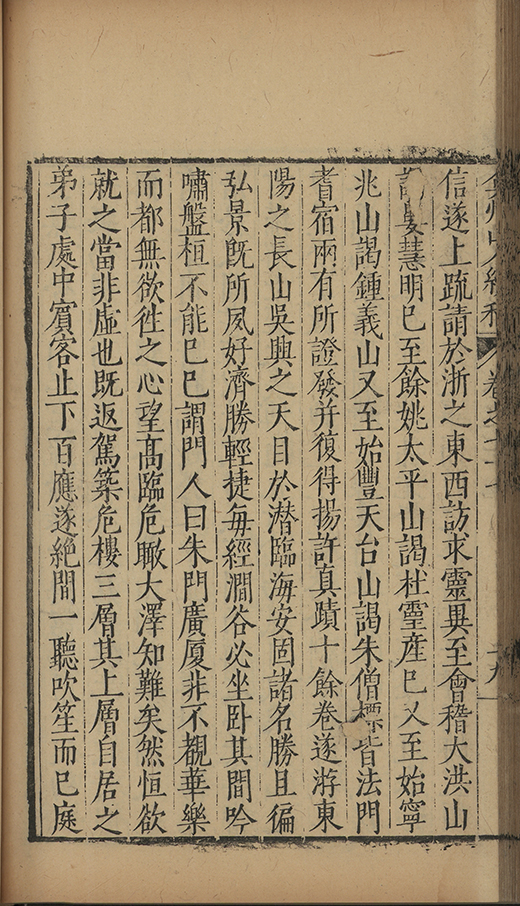 弇州山人續稿 卷之
信遂上疏請於浙之東西訪求靈異至會稽大洪山
謁婁慧明巳至餘姚太平山謁杜霊産巳又至始寧
兆山謁鍾義山又至始豐天台山謁朱僧標皆法門
耆宿兩有所證發并復得揚許真蹟十餘卷遂游東
陽之長山吳興之天目於潛臨海安固諸名勝且徧
弘景既所夙好濟勝輕捷每經澗谷必坐卧其間吟
嘯盤桓不能巳巳謂門人曰朱門廣厦非不覩華樂
而都無欲徃之心望髙臨危瞰大澤知難矣然恒欲
就之當非虛也既返駕築危樓三層其上層自居之
弟子處中賓客止下百應遂絶間一聽吹笙而巳庭